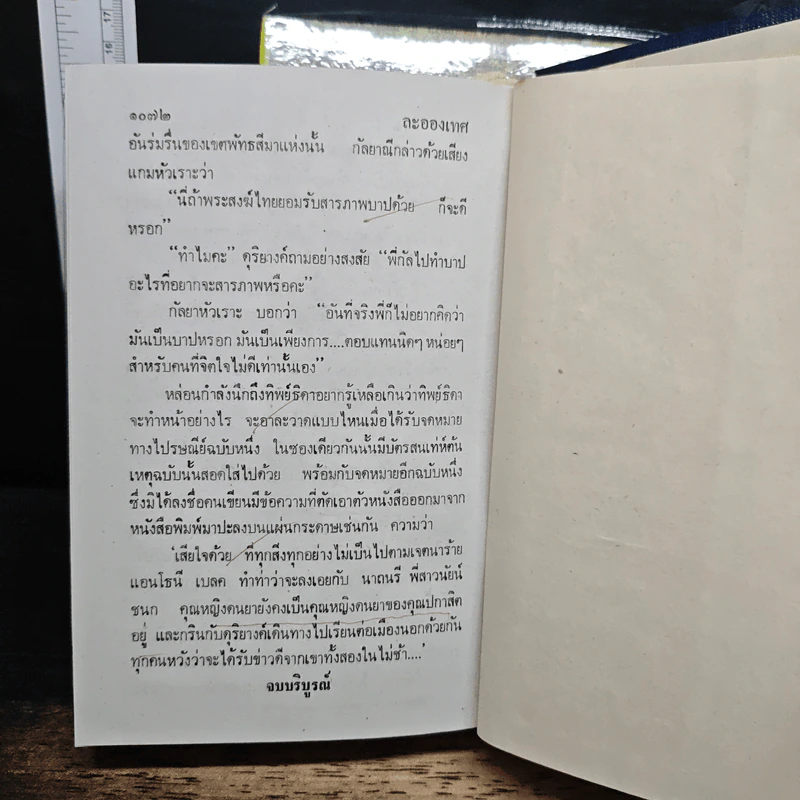 ๑๐๗๒ ละอองเทศ
อันร่มรื่นของเขตพัทธสีมาแห่งนั้น กัลยาณีกล่าวด้วยเสียง
แกมหัวเราะว่า
“นี่ถ้าพระสงฆ์ไทยยอมรับสารภาพบาปด้วย ก็จะดี
หรอก”
“ทำไมคะ” ดุริยางค์ถามอย่างสงสัย “พี่กัลไปทำบาป
อะไรที่อยากจะสารภาพหรือคะ”
กัลยาหัวเราะ บอกว่า “อันที่จริงพี่ก็ไม่อยากคิดว่า
มันเป็นบาปหรอก มันเป็นเพียงการ....ตอบแทนนิดๆ หน่อยๆ
สำหรับคนที่จิตใจไม่ดีเท่านั้นเอง”
หล่อนกำลังนึกถึงทิพย์ธิดาอยากรู้เหลือเกินว่าทิพย์ธิดา
จะทำหน้าอย่างไร จะอาละวาดแบบไหนเมื่อได้รับจดหมาย
ทางไปรษณีย์ฉบับหนึ่ง ในซองเดียวกันนั้นมีบัตรสนเท่ห์ต้น
เหตุฉบับนั้นสอดใส่ไปด้วย พร้อมกับจดหมายอีกฉบับหนึ่ง
ซึ่งมิได้ลงชื่อคนเขียนมีข้อความที่ตัดเอาตัวหนังสือออกมาจาก
หนังสือพิมพ์มาปะลงบนแผ่นกระดาษเช่นกัน ความว่า
‘เสียใจด้วย ที่ทุกสิ่งทุกอย่างไม่เป็นไปตามเจตนาร้าย
แอนโธนี เบลค ทำท่าว่าจะลงเอยกับ นาถนรี พี่สาวนัยน์
ชนก คุณหญิงดนยายังคงเป็นคุณหญิงดนยาของคุณปกาสิต
อยู่ และกรินกับดุริยางค์เดินทางไปเรียนต่อเมืองนอกด้วยกัน
ทุกคนหวังว่าจะได้รับข่าวดีจากเขาทั้งสองในไม่ช้า....’
จบบริบูรณ์
17
16